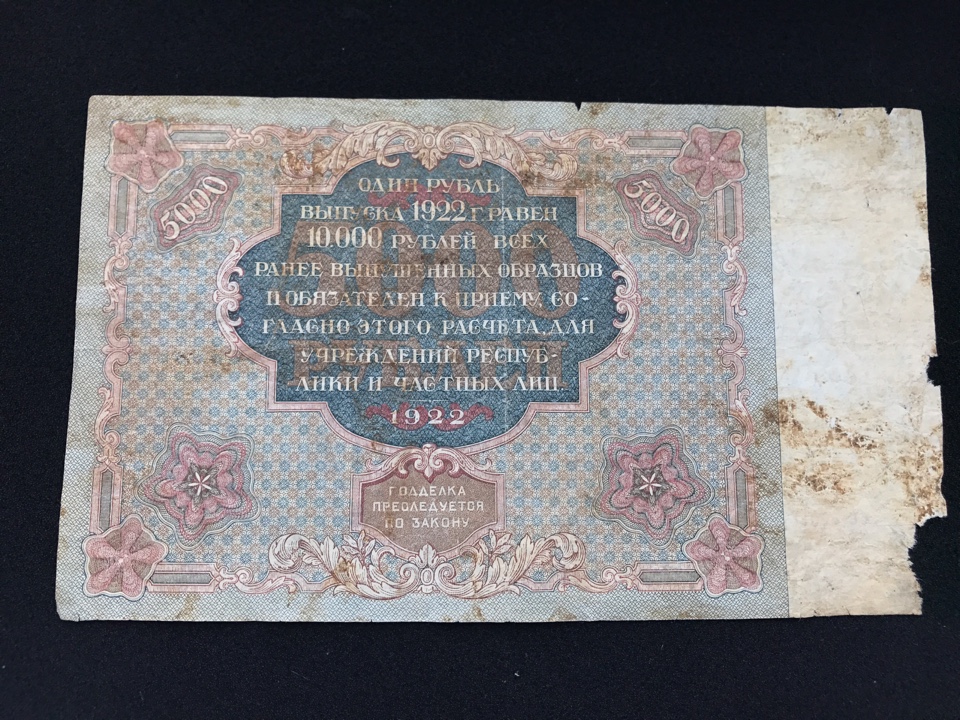 5000
5000
ОДИН РУБЛЬ
ВЫПУСКА 1922 Г. РАВЕН
10.000 РУБЛЕЙ ВСЕХ
РАНЕЕ ВЫПУЩЕННЫХ ОБРАЗЦОВ
И ОБЯЗАТЕЛЕН К ПРИЕМУ, СО-
ГЛАСНО ЭТОГО РАСЧЕТА, ДЛЯ
УЧРЕЖДЕНИЙ РЕСПУБ-
ЛИКИ И ЧАСТНЫХ ЛИЦ.
5000
РУБЛЕЙ
1922
ПОДДЕЛКА
ПРЕСЛЕДУЕТСЯ
ПО ЗАКОНУ